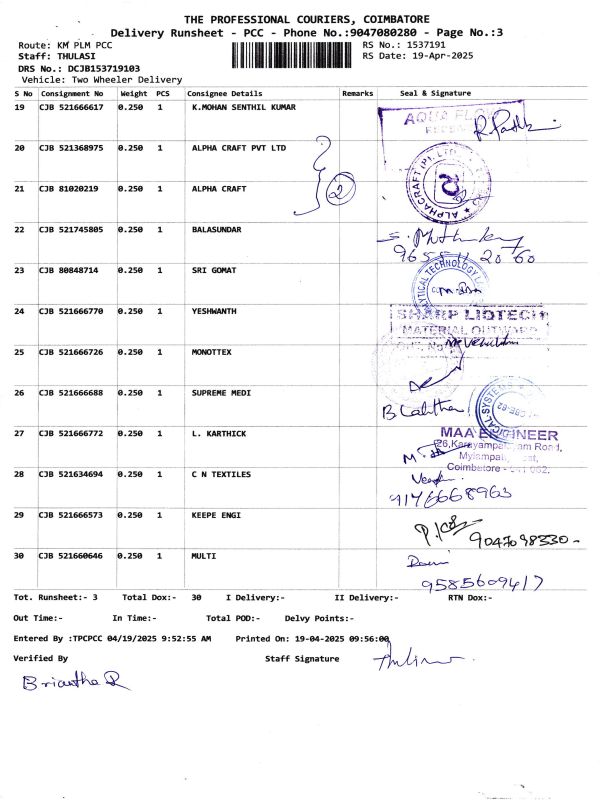 THE PROFESSIONAL COURIERS, COIMBATORE
Delivery Runsheet - PCC - Phone No.:9047080280 - Page No.:3
Route: KM PLM PCC
RS No.: 1537191
Staff: THULASI
RS Date: 19-Apr-2025
DRS No.: DCJB153719103
Vehicle: Two Wheeler Delivery
S No Consignment No Weight PCS Consignee Details Remarks Seal & Signature
19 CJB 521666617 0.250 1 K.MOHAN SENTHIL KUMAR
AQUA
20 CJB 521368975 0.250 1 ALPHA CRAFT PVT LTD
ALPHACRAFT (P). LTD
21 CJB 81020219 0.250 1 ALPHA CRAFT
2
22 CJB 521745805 0.250 1 BALASUNDAR
23 CJB 80848714 0.250 1 SRI GOMAT
TECHNOLOGY
24 CJB 521666770 0.250 1 YESHWANTH
SHARP LIOTECH
MATERIAL OUTWARD
25 CJB 521666726 0.250 1 MONOTTEX
26 CJB 521666688 0.250 1 SUPREME MEDI
27 CJB 521666772 0.250 1 L. KARTHICK
MAA ENGINEER
Road,
Coimbatore
28 CJB 521634694 0.250 1 C N TEXTILES
9176668963
29 CJB 521666573 0.250 1 KEEPE ENGI
9047098330-
30 CJB 521660646 0.250 1 MULTI
9585609417
Tot. Runsheet:- 3 Total Dox:- 30 I Delivery:- II Delivery:- RTN Dox:-
Out Time:- In Time:- Total POD:- Delvy Points:-
Entered By :TPCPCC 04/19/2025 9:52:55 AM Printed On: 19-04-2025 09:56:00
Verified By Staff Signature